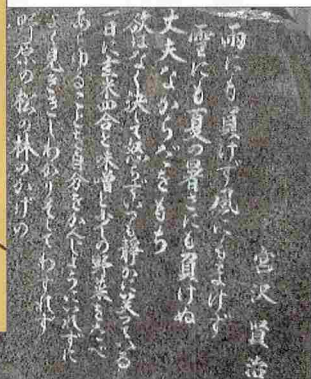 宮沢賢治
雨にも負けず風にもまけず
雪にも夏の暑さにも負けぬ
丈夫なからだをもち
欲はなく决して怒らずいつも静かに笑っている
一日に玄米四合と味噌と少しの野菜をたべ
あらゆることを自分をかんじょうにいれずに
よく見ききしわかりそしてわすれず
野原の松の林のかげの